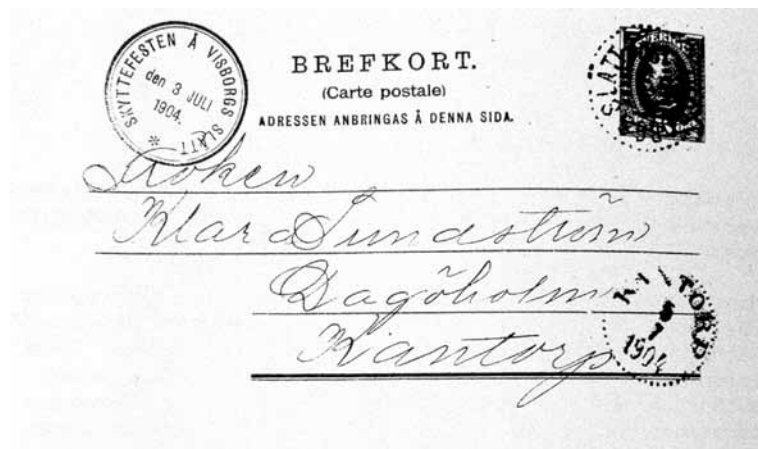 SKYTTEFESTEN Å VISBORGS SLÄTT
den 3 JULI
1904.
*
BREFKORT.
(Carte postale)
ADRESSEN ANBRINGAS Å DENNA SIDA.
SLÄTT
Fröken
Klara Lundström
Dagöholm
Kantorp
TORP
5
7
1904